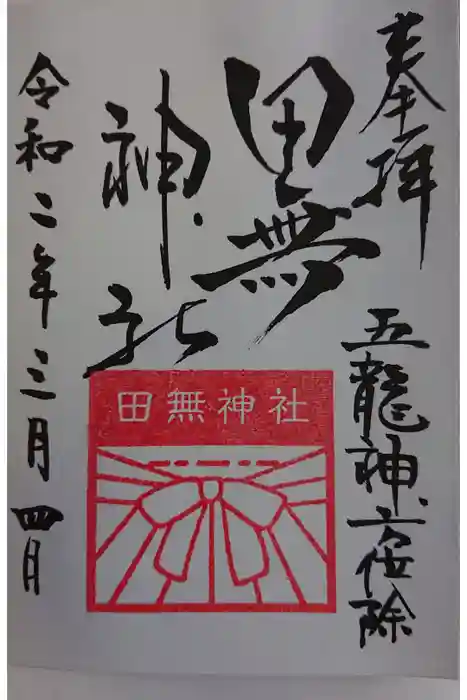 奉拝
五龍神方位除
田無
神社
田無神社
令和二年三月四月